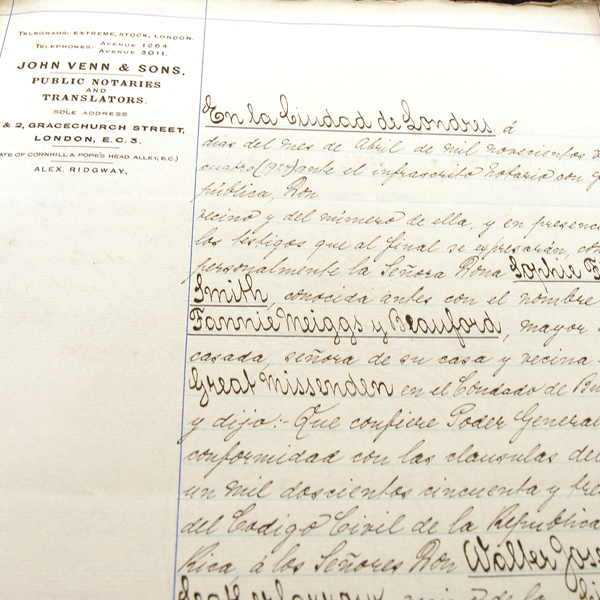 TELEGRAMS: EXTREME, STOCK, LONDON.
TELEPHONES: AVENUE 1264.
AVENUE 3011.
JOHN VENN & SONS,
PUBLIC NOTARIES
AND
TRANSLATORS.
SOLE ADDRESS
& 2, GRACECHURCH STREET,
LONDON, E.C.3.
ATE OF CORNHILL & POPE'S HEAD ALLEY, E.C.)
ALEX. RIDGWAY.
En la Ciudad de Londres á
dias del mes de Abril de mil novecientos
cuatro (19 ) ante el infrascrito Notario con
pública, Don
vecino y del número de ella, y en presenc
los testigos que al final se expresarán, co
personalmente la Señora Doña Sophie F
Smith, conocida antes con el nombre
Fannie Meiggs y Beauford, mayor
casada, señora de su casa y vecina
Great Missenden en el Condado de Bu
y dijo:- Que confiere Poder General
conformidad con las clausulas del
un mil doscientos cincuenta y tre
del Codigo Civil de la Republica
Rica, á los Señores Don Walter Jose
de la